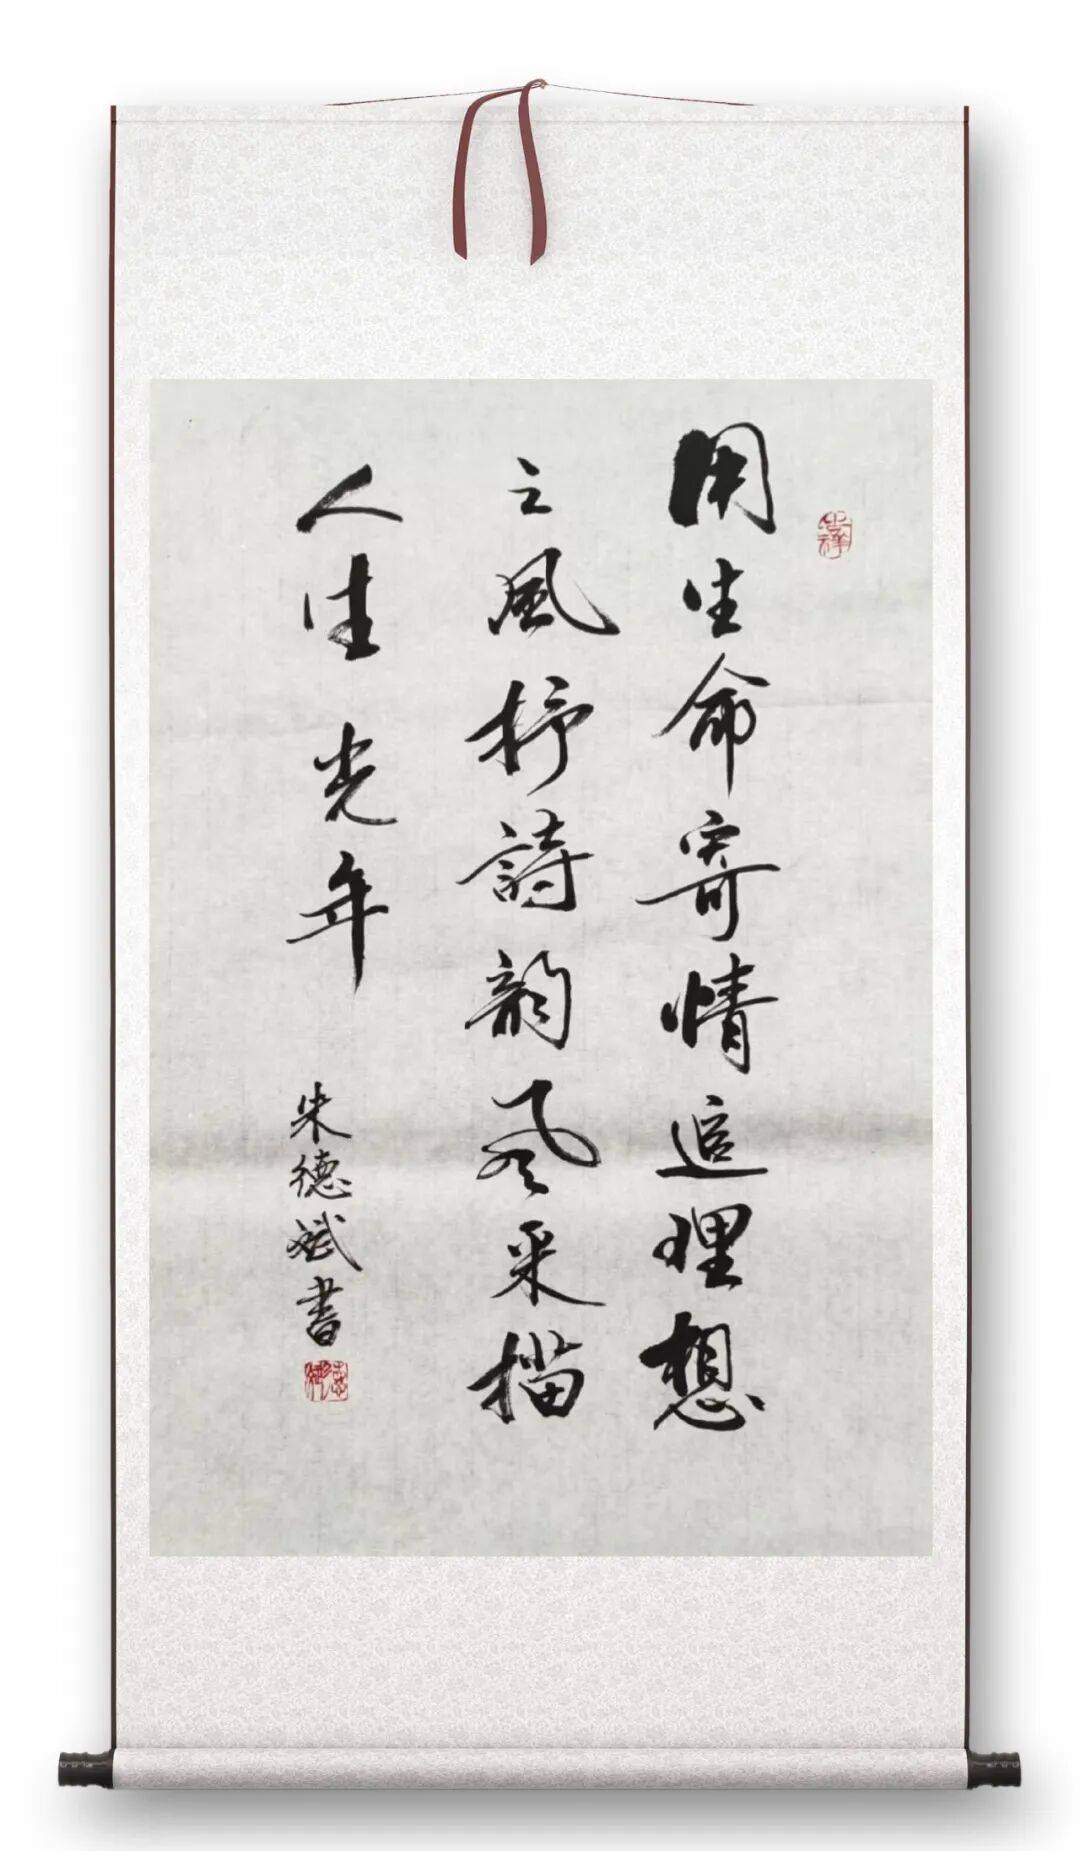 用生命寄情追理想
之風抒詩韵风采描
人生光年
朱德斌書